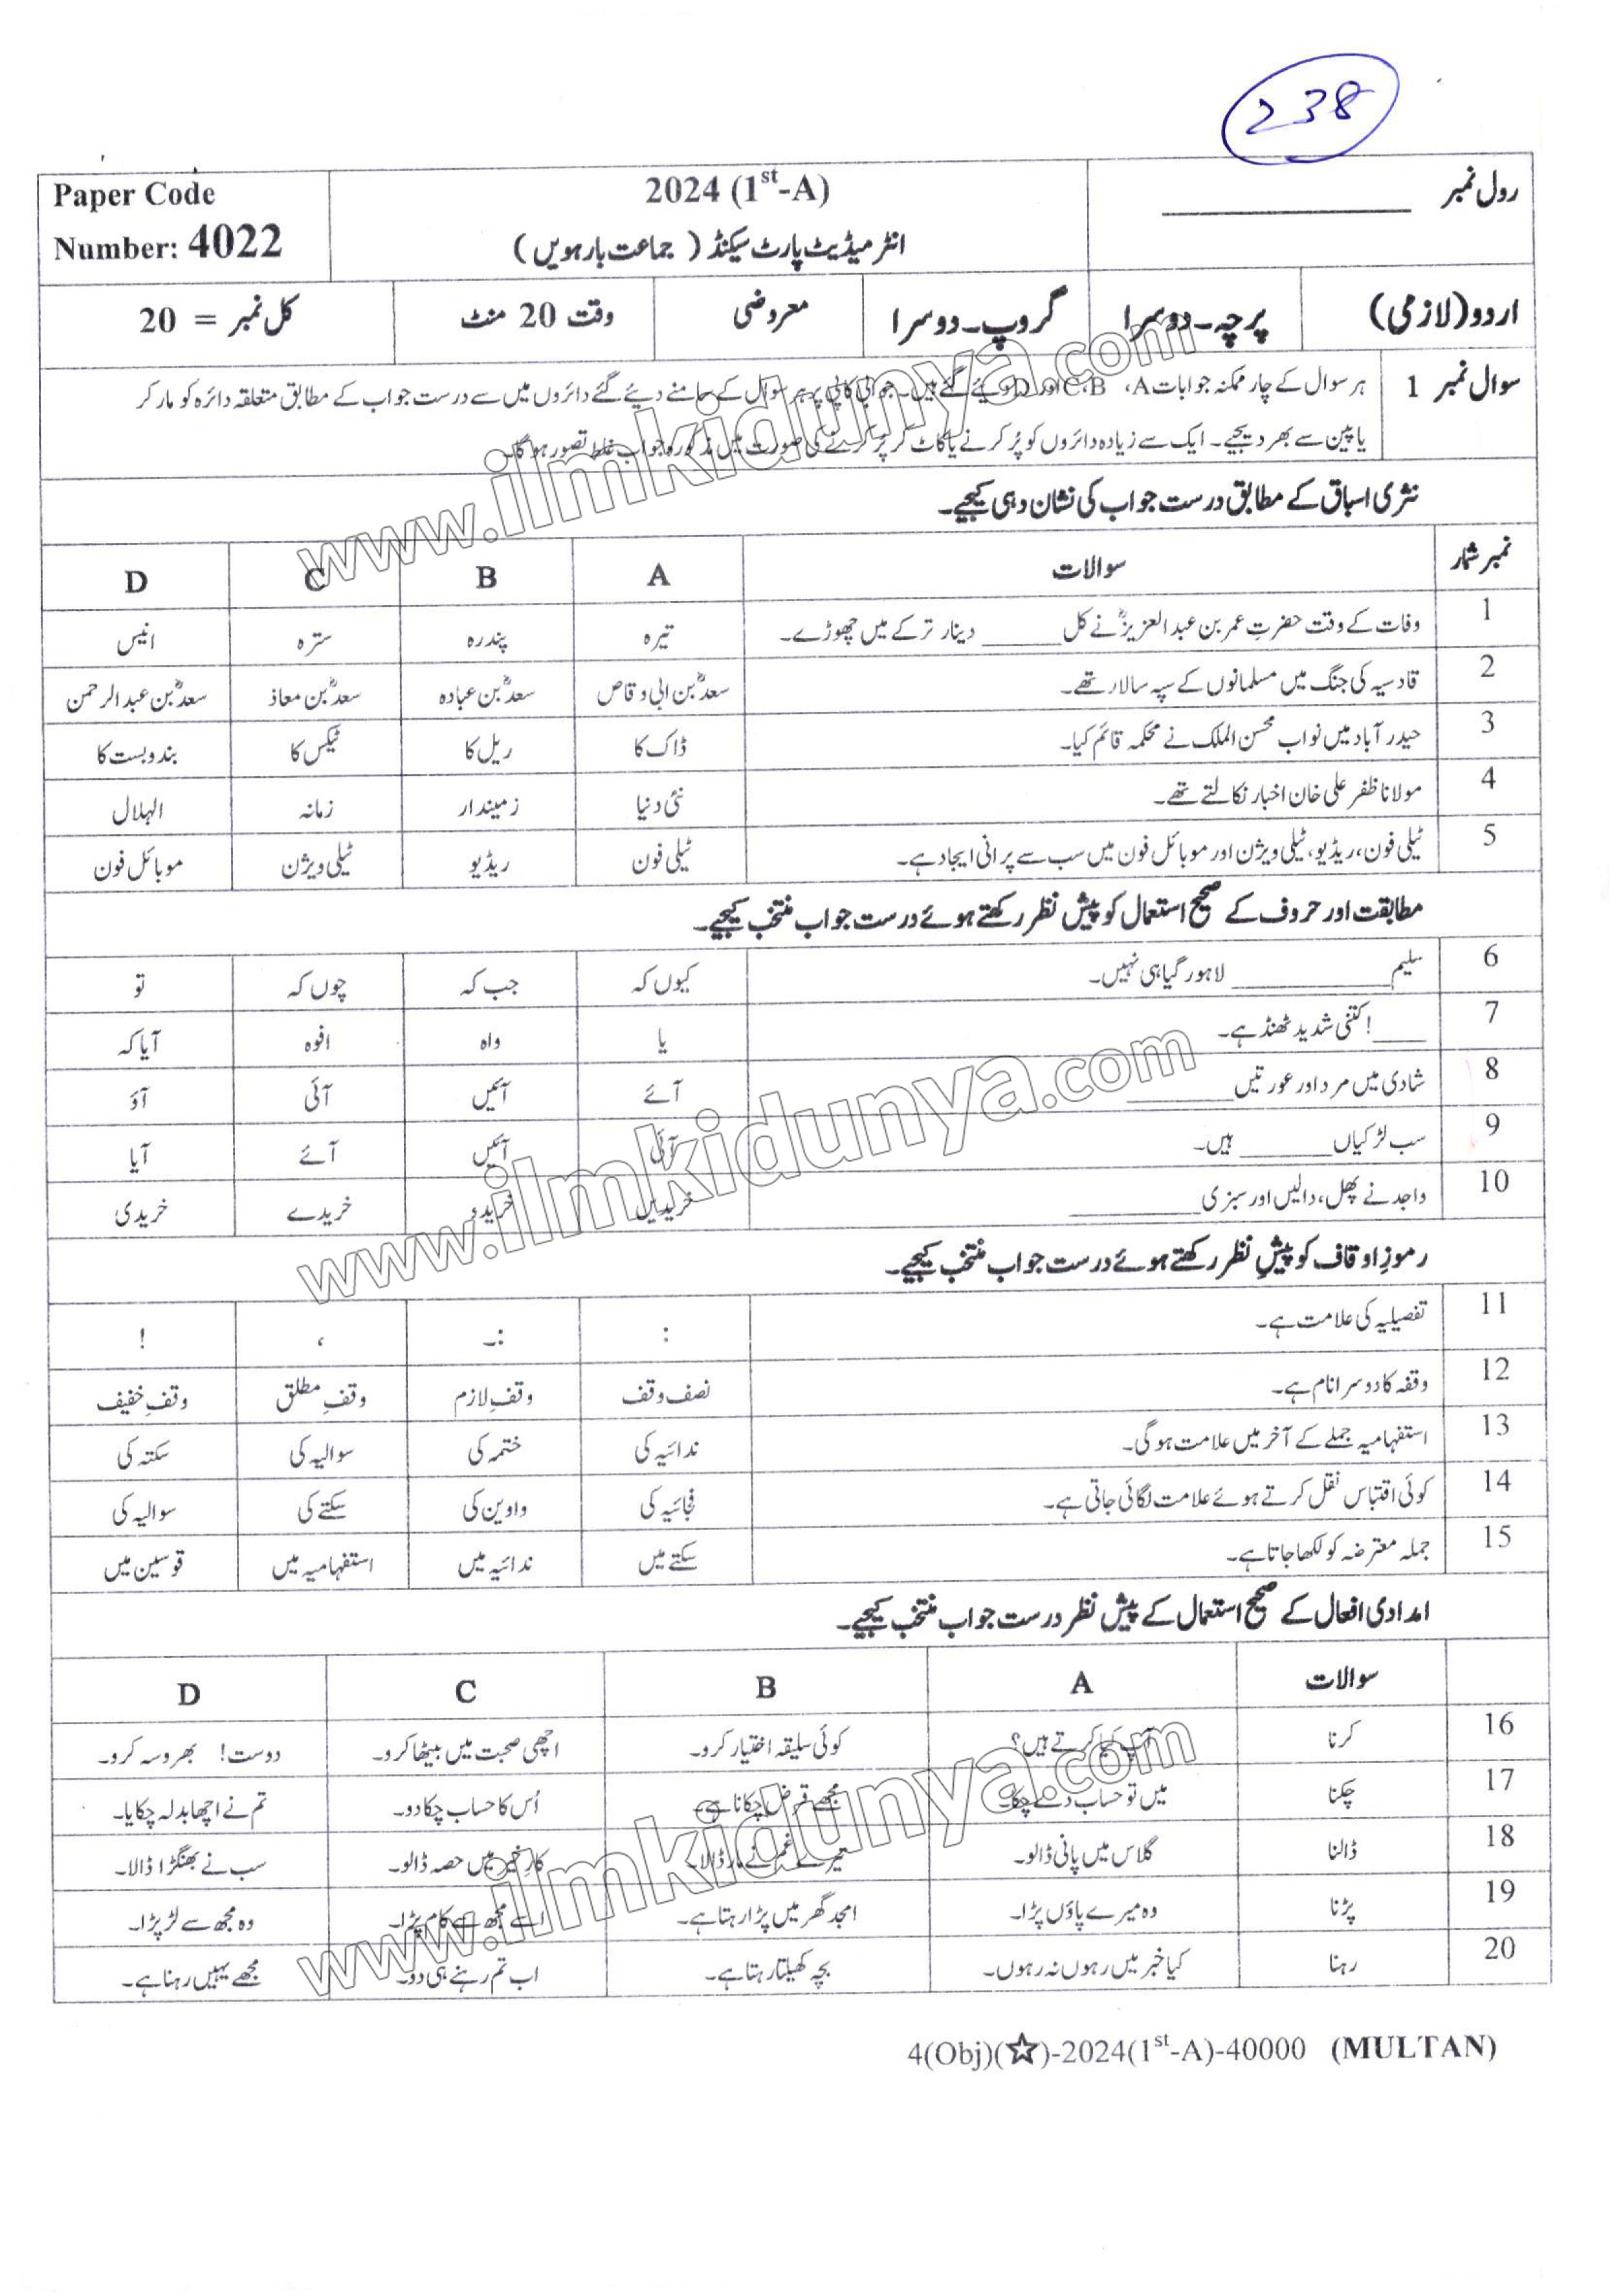 238
Paper Code
Number: 4022
2024 (1st-A)
انٹرمیڈیٹ پارٹ سیکنڈ ( جماعت بارہویں )
رول نمبر ____________
اردو(لازمی) پرچہ۔دوسرا گروپ۔دوسرا معروضی وقت 20 منٹ کل نمبر = 20
سوال نمبر 1 ہر سوال کے چار ممکنہ جوابات A، B، C اور D دیئے گئے ہیں۔ جوابی کاپی پر ہر سوال کے سامنے دیئے گئے دائروں میں سے درست جواب کے مطابق متعلقہ دائرہ کو مارکر
یا پین سے بھر دیجیے۔ ایک سے زیادہ دائروں کو پُر کرنے یا کاٹ کر پُر کرنے کی صورت میں مذکورہ جواب غلط تصور ہو گا۔
نثری اسباق کے مطابق درست جواب کی نشان دہی کیجیے۔
نمبر شمار سوالات A B C D
1 وفات کے وقت حضرتِ عمر بن عبد العزیزؒ نے کل ______ دینار ترکے میں چھوڑے۔ تیرہ پندرہ سترہ انیس
2 قادسیہ کی جنگ میں مسلمانوں کے سپہ سالار تھے۔ سعدؓ بن ابی وقاص سعدؓ بن عبادہ سعدؓ بن معاذ سعدؓ بن عبد الرحمن
3 حیدر آباد میں نواب محسن الملک نے محکمہ قائم کیا۔ ڈاک کا ریل کا ٹیکس کا بندوبست کا
4 مولانا ظفر علی خان اخبار نکالتے تھے۔ نئی دنیا زمیندار زمانہ الہلال
5 ٹیلی فون، ریڈیو، ٹیلی ویژن اور موبائل فون میں سب سے پرانی ایجاد ہے۔ ٹیلی فون ریڈیو ٹیلی ویژن موبائل فون
مطابقت اور حروف کے صحیح استعمال کو پیش نظر رکھتے ہوئے درست جواب منتخب کیجیے۔
6 سلیم ____________ لاہور گیا ہی نہیں۔ کیوں کہ جب کہ چوں کہ تو
7 ____! کتنی شدید ٹھنڈ ہے۔ یا واہ افوہ آیا کہ
8 شادی میں مرد اور عورتیں ________ آئے آئیں آئی آؤ
9 سب لڑکیاں _______ ہیں۔ آئی آئیں آئے آیا
10 واجد نے پھل، دالیں اور سبزی __________ خریدیں خریدو خریدے خریدی
رموزِ اوقاف کو پیشِ نظر رکھتے ہوئے درست جواب منتخب کیجیے۔
11 تفصیلیہ کی علامت ہے۔ : :۔ ، !
12 وقفہ کا دوسرا نام ہے۔ نصف وقف وقفِ لازم وقفِ مطلق وقفِ خفیف
13 استفہامیہ جملے کے آخر میں علامت ہو گی۔ ندائیہ کی ختمہ کی سوالیہ کی سکتہ کی
14 کوئی اقتباس نقل کرتے ہوئے علامت لگائی جاتی ہے۔ فجائیہ کی واوین کی سکتے کی سوالیہ کی
15 جملہ معترضہ کو لکھا جاتا ہے۔ سکتے میں ندائیہ میں استفہامیہ میں قوسین میں
امدادی افعال کے صحیح استعمال کے پیش نظر درست جواب منتخب کیجیے۔
سوالات A B C D
16 کرنا آپ کیا کرتے ہیں؟ کوئی سلیقہ اختیار کرو۔ اچھی صحبت میں بیٹھا کرو۔ دوست! بھروسہ کرو۔
17 چکنا میں تو حساب دے چکا۔ مجھے قرض چکانا ہے۔ اُس کا حساب چکا دو۔ تم نے اچھا بدلہ چکایا۔
18 ڈالنا گلاس میں پانی ڈالو۔ تیرے غم نے مار ڈالا۔ کارِ خیر میں حصہ ڈالو۔ سب نے بھنگڑا ڈالا۔
19 پڑنا وہ میرے پاؤں پڑا۔ امجد گھر میں پڑا رہتا ہے۔ اسے مجھ سے کام پڑا۔ وہ مجھ سے لڑ پڑا۔
20 رہنا کیا خبر میں رہوں نہ رہوں۔ بچہ کھیلتا رہتا ہے۔ اب تم رہنے ہی دو۔ مجھے یہیں رہنا ہے۔
4(Obj)(☆)-2024(1st-A)-40000 (MULTAN)
www.ilmkidunya.com
www.ilmkidunya.com
www.ilmkidunya.com